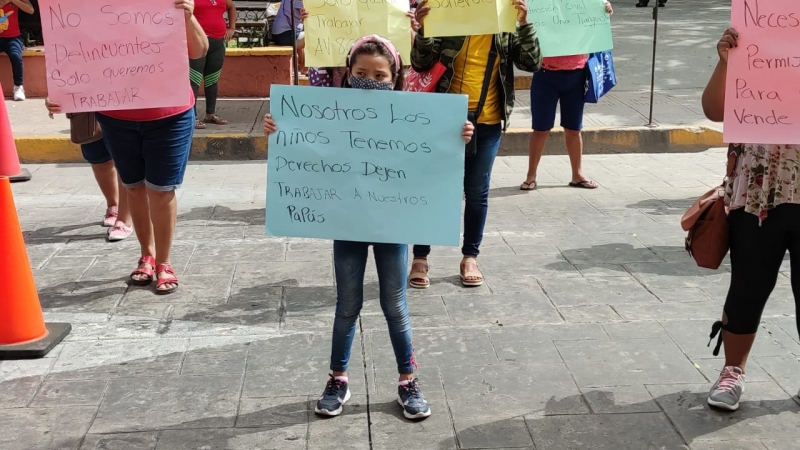 No Somos
Delincuentes
Solo queremos
TRABAJAR
Trabajar
Nosotros Los
Niños Tenemos
Derechos Dejen
TRABAJAR A Nuestros
Papás
Para
Vende